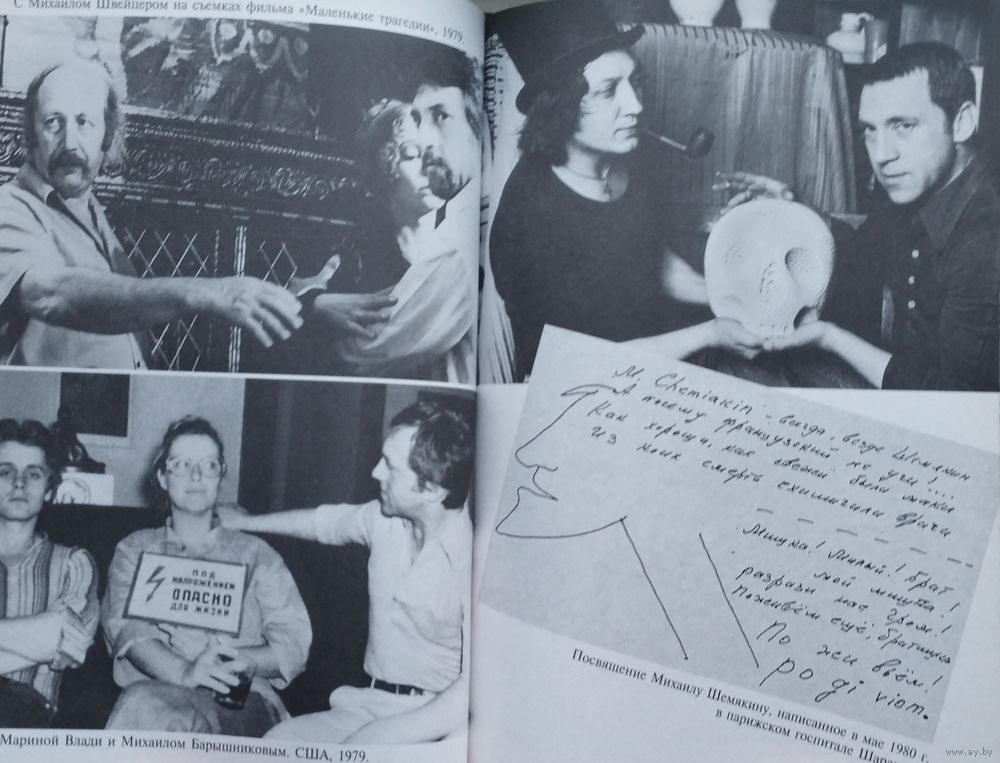 С Михаилом Швейцером на съемках фильма «Маленькие трагедии», 1979.
ПОД
НАПРЯЖЕНИЕМ
ОПАСНО
ДЛЯ ЖИЗНИ
Мариной Влади и Михаилом Барышниковым. США, 1979.
M. Chemiakin – всегда, везде Шемякин
А посему французский не учи!...
Как хороши, как свежи были маки
Из коих смерть схимичили врачи
Мишка! Милый! Брат
мой Мишка!
разрази нас гром!
Поживём ещё, братишка
По жи вьём!
po gi viom.
Посвящение Михаилу Шемякину, написанное в мае 1980 г.
в парижском госпитале
www.ay.by